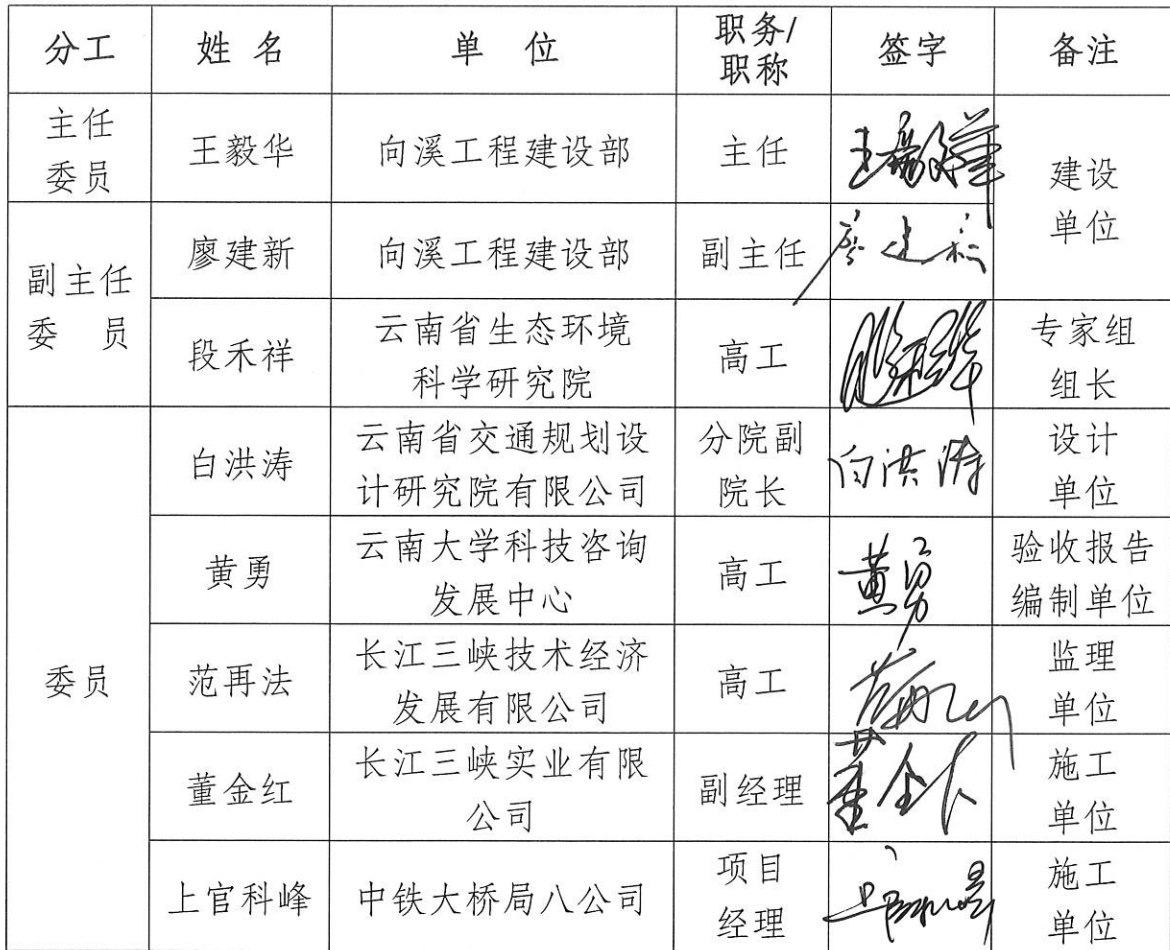 分工 姓名 单位 职务/职称 签字 备注
主任委员 王毅华 向溪工程建设部 主任 王毅华 建设单位
副主任委员 廖建新 向溪工程建设部 副主任 廖建新
段禾祥 云南省生态环境科学研究院 高工 专家组组长
白洪涛 云南省交通规划设计研究院有限公司 分院副院长 白洪涛 设计单位
黄勇 云南大学科技咨询发展中心 高工 黄勇 验收报告编制单位
委员 范再法 长江三峡技术经济发展有限公司 高工 监理单位
董金红 长江三峡实业有限公司 副经理 施工单位
上官科峰 中铁大桥局八公司 项目经理 施工单位